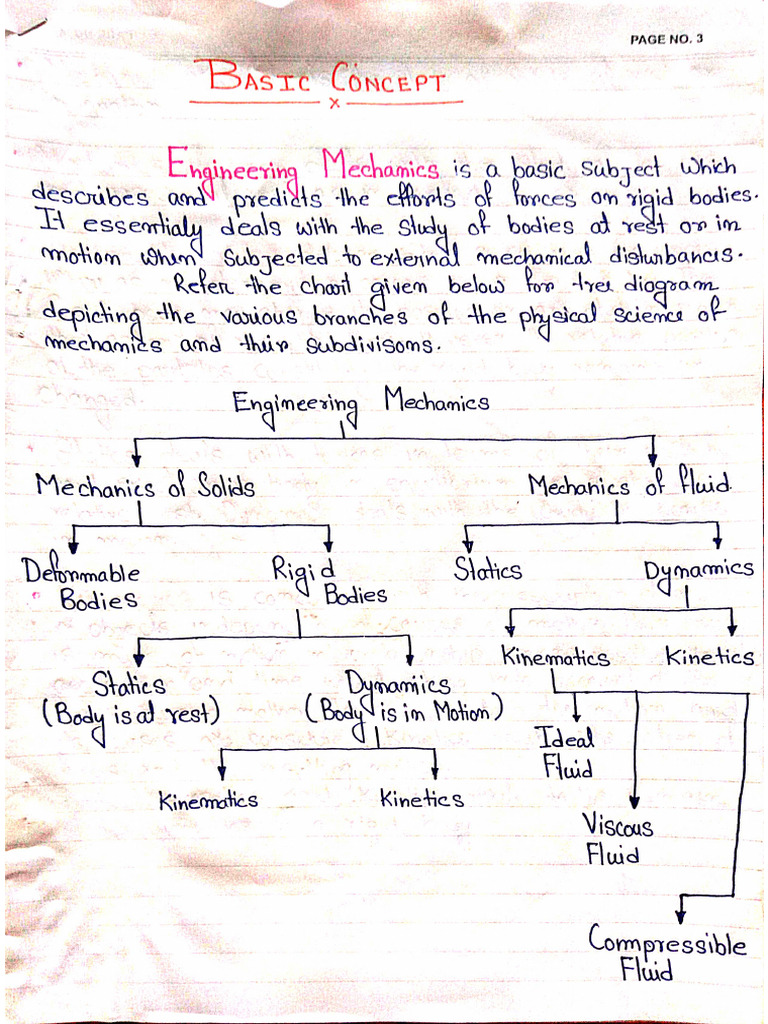 PAGE NO. 3
BASIC CONCEPT
x
Engineering Mechanics is a basic subject which
describes and predicts the efforts of forces on rigid bodies.
It essentialy deals with the study of bodies at rest or in
motion when subjected to external mechanical disturbances.
Refer the chart given below for tree diagram
depicting the various branches of the physical science of
mechanics and their subdivisons.
Engineering Mechanics
Mechanics of Solids Mechanics of fluid
Deformable Rigid Statics Dynamics
Bodies Bodies
Kinematics Kinetics
Statics Dynamiics
(Body is at rest) (Body is in Motion)
Ideal
Fluid
Kinematics Kinetics
Viscous
Fluid
Compressible
Fluid